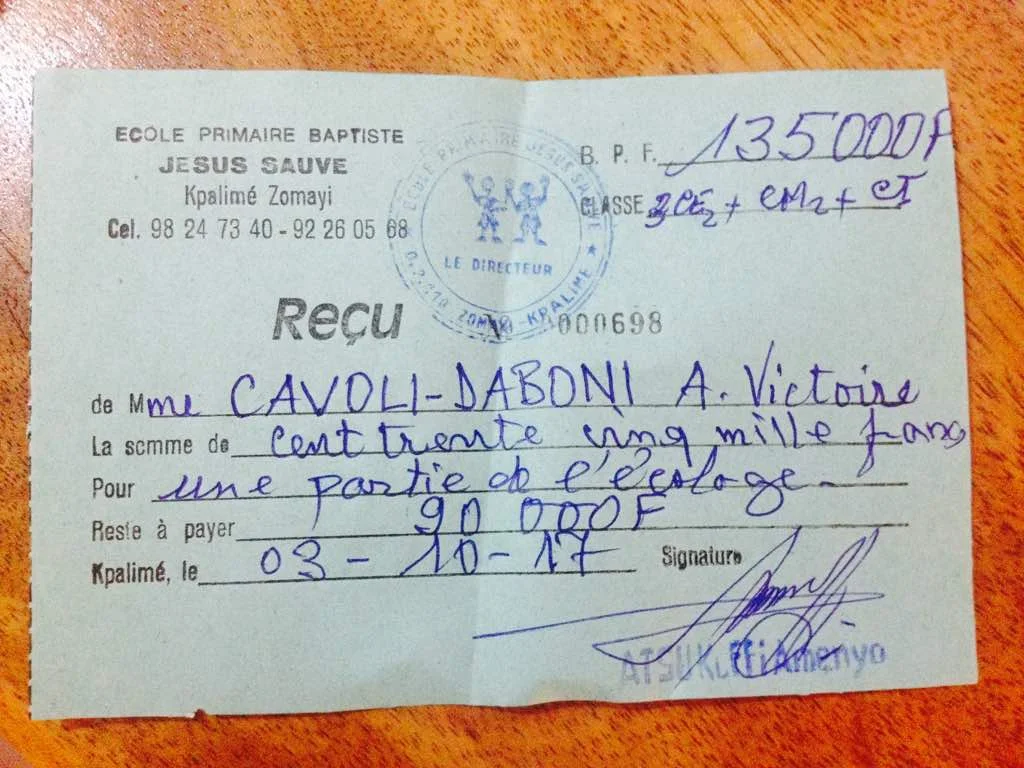 ECOLE PRIMAIRE BAPTISTE
JESUS SAUVE
Kpalimé Zomayi
Cel. 98 24 73 40 - 92 26 05 68
B. P. F. 135000F
CLASSE 3CE2 + CM2 + CI
ECOLE PRIMAIRE JESUS SAUVE
LE DIRECTEUR
KPALIME
Reçu
N° 000698
de Mme CAVOLI-DABONI A. Victoire
La somme de cent trente cinq mille francs
Pour une partie de l'écolage
Reste à payer 90 000F
Kpalimé, le 03-10-17
Signature
ATSU Koffi Amenyo